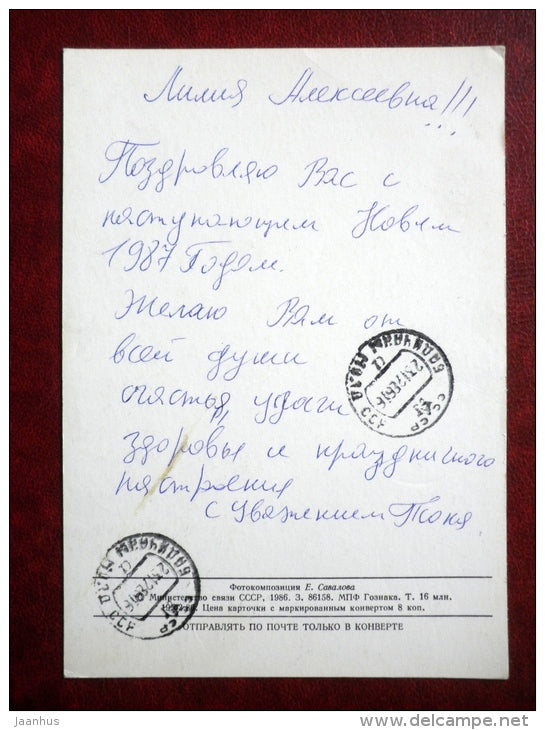 Лилия Алексеевна!!!
Поздровляю Вас с
наступающем Новым
1987 Годом.
Желаю Вам от
всей души
счастья, удачи
здоровья и праздничного
настроения
с уважением Тоня
Фотокомпозиция Е. Савалова
Министерство связи СССР, 1986. З. 86158. МПФ Гознака. Т. 16 млн.
Цена карточки с маркированным конвертом 8 коп.
ОТПРАВЛЯТЬ ПО ПОЧТЕ ТОЛЬКО В КОНВЕРТЕ
СССР
jaanhus
www.delcampe.net